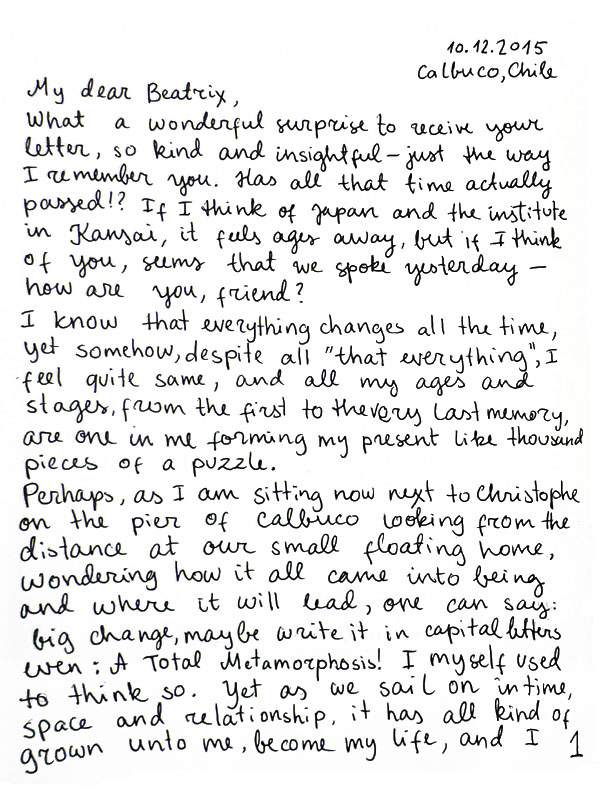 10.12.2015
Calbuco, Chile
My dear Beatrix,
What a wonderful surprise to receive your
letter, so kind and insightful – just the way
I remember you. Has all that time actually
passed!? If I think of Japan and the institute
in Kansai, it feels ages away, but if I think
of you, seems that we spoke yesterday –
how are you, friend?
I know that everything changes all the time,
yet somehow, despite all "that everything", I
feel quite same, and all my ages and
stages, from the first to the very last memory,
are one in me forming my present like thousand
pieces of a puzzle.
Perhaps, as I am sitting now next to Christophe
on the pier of Calbuco looking from the
distance at our small floating home,
wondering how it all came into being
and where it will lead, one can say:
big change, maybe write it in capital letters
even: A Total Metamorphosis! I myself used
to think so. Yet as we sail on in time,
space and relationship, it has all kind of
grown unto me, become my life, and I 1